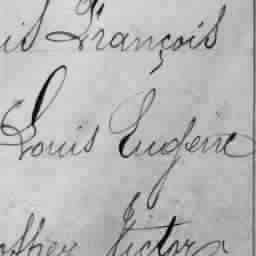 is François
Louis Eugène
Victor